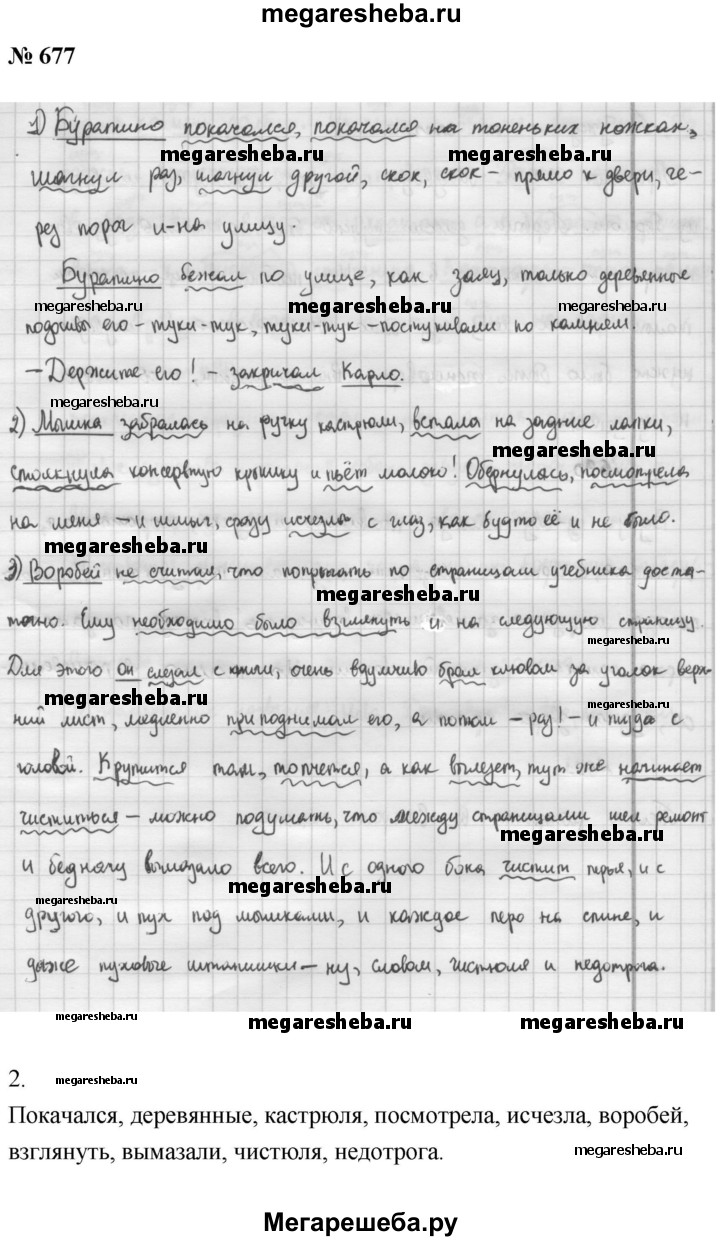 megaresheba.ru
№ 677
1) Буратино покачался, покачался на тоненьких ножках,
megaresheba.ru megaresheba.ru
шагнул раз, шагнул другой, скок, скок - прямо к двери, че-
рез порог и - на улицу.
Буратино бежал по улице, как заяц, только деревянные
megaresheba.ru megaresheba.ru megaresheba.ru
подошвы его - туки-тук, туки-тук - постукивали по камням.
- Держите его! - закричал Карло.
2) Мышка забралась на ручку кастрюли, встала на задние лапки,
megaresheba.ru
столкнула консервную крышку и пьёт молоко! Обернулась, посмотрела
на меня - и шмыг, сразу исчезла с глаз, как будто её и не было.
megaresheba.ru
3) Воробей не считал, что попрыгать по страницам учебника доста-
megaresheba.ru
точно. Ему необходимо было взглянуть и на следующую страницу.
megaresheba.ru
Для этого он слезал с книги, очень вдумчиво брал клювом за уголок верх-
megaresheba.ru megaresheba.ru
ний лист, медленно приподнимал его, а потом - раз! - и туда с
головой. Крутится там, топчется, а как вылезет, тут же начинает
чиститься - можно подумать, что между страницами шел ремонт
megaresheba.ru
и беднягу вымазало всего. И с одного бока чистит перья, и с
megaresheba.ru megaresheba.ru
другого, и пух под мышками, и каждое перо на спине, и
даже пуховые штанишки - ну, словом, чистюля и недотрога.
megaresheba.ru megaresheba.ru megaresheba.ru
2. megaresheba.ru
Покачался, деревянные, кастрюля, посмотрела, исчезла, воробей,
взглянуть, вымазали, чистюля, недотрога. megaresheba.ru
Мегарешеба.ру